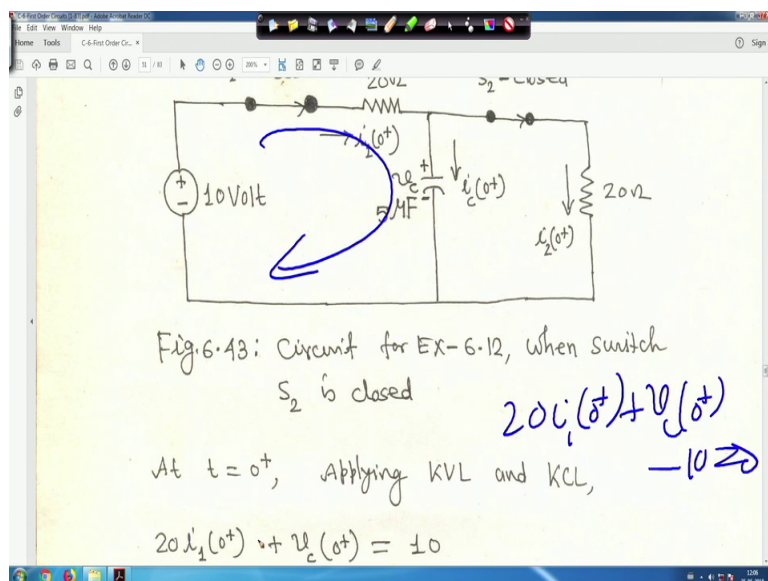 C-6-First Order Circuits [1-83].pdf - Adobe Acrobat Reader DC
File Edit View Window Help
Home Tools C-6-First Order Cir... × Sign
31 / 83 200%
20Ω S₂-Closed
i₁(0⁺)
10 Volt
v_c + -
5 μF
i_c(0⁺)
i₂(0⁺)
20Ω
Fig.6.43: Circuit for EX-6.12, when switch
S₂ is closed
20i₁(0⁺)+v_c(0⁺)
-10=0
At t=0⁺, Applying KVL and KCL,
20i₁(0⁺) + v_c(0⁺) = 10
12:05